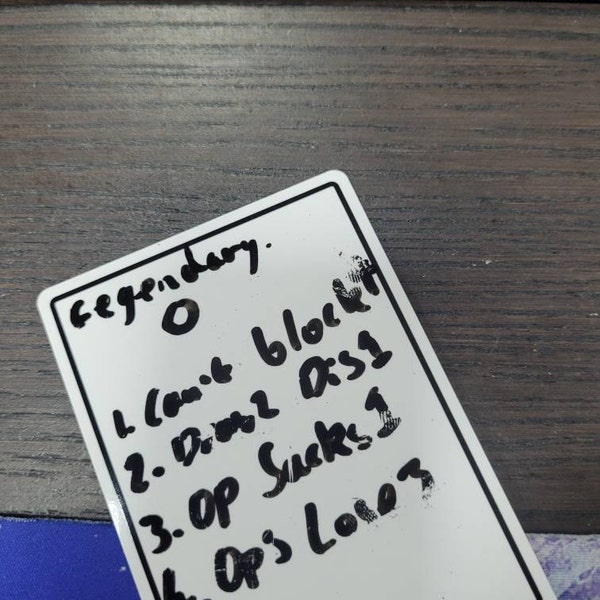 Legendary.
0
1. Can't block
2. Draw 2 Dis 1
3. OP Sucks 1
4. Op's Lose 3